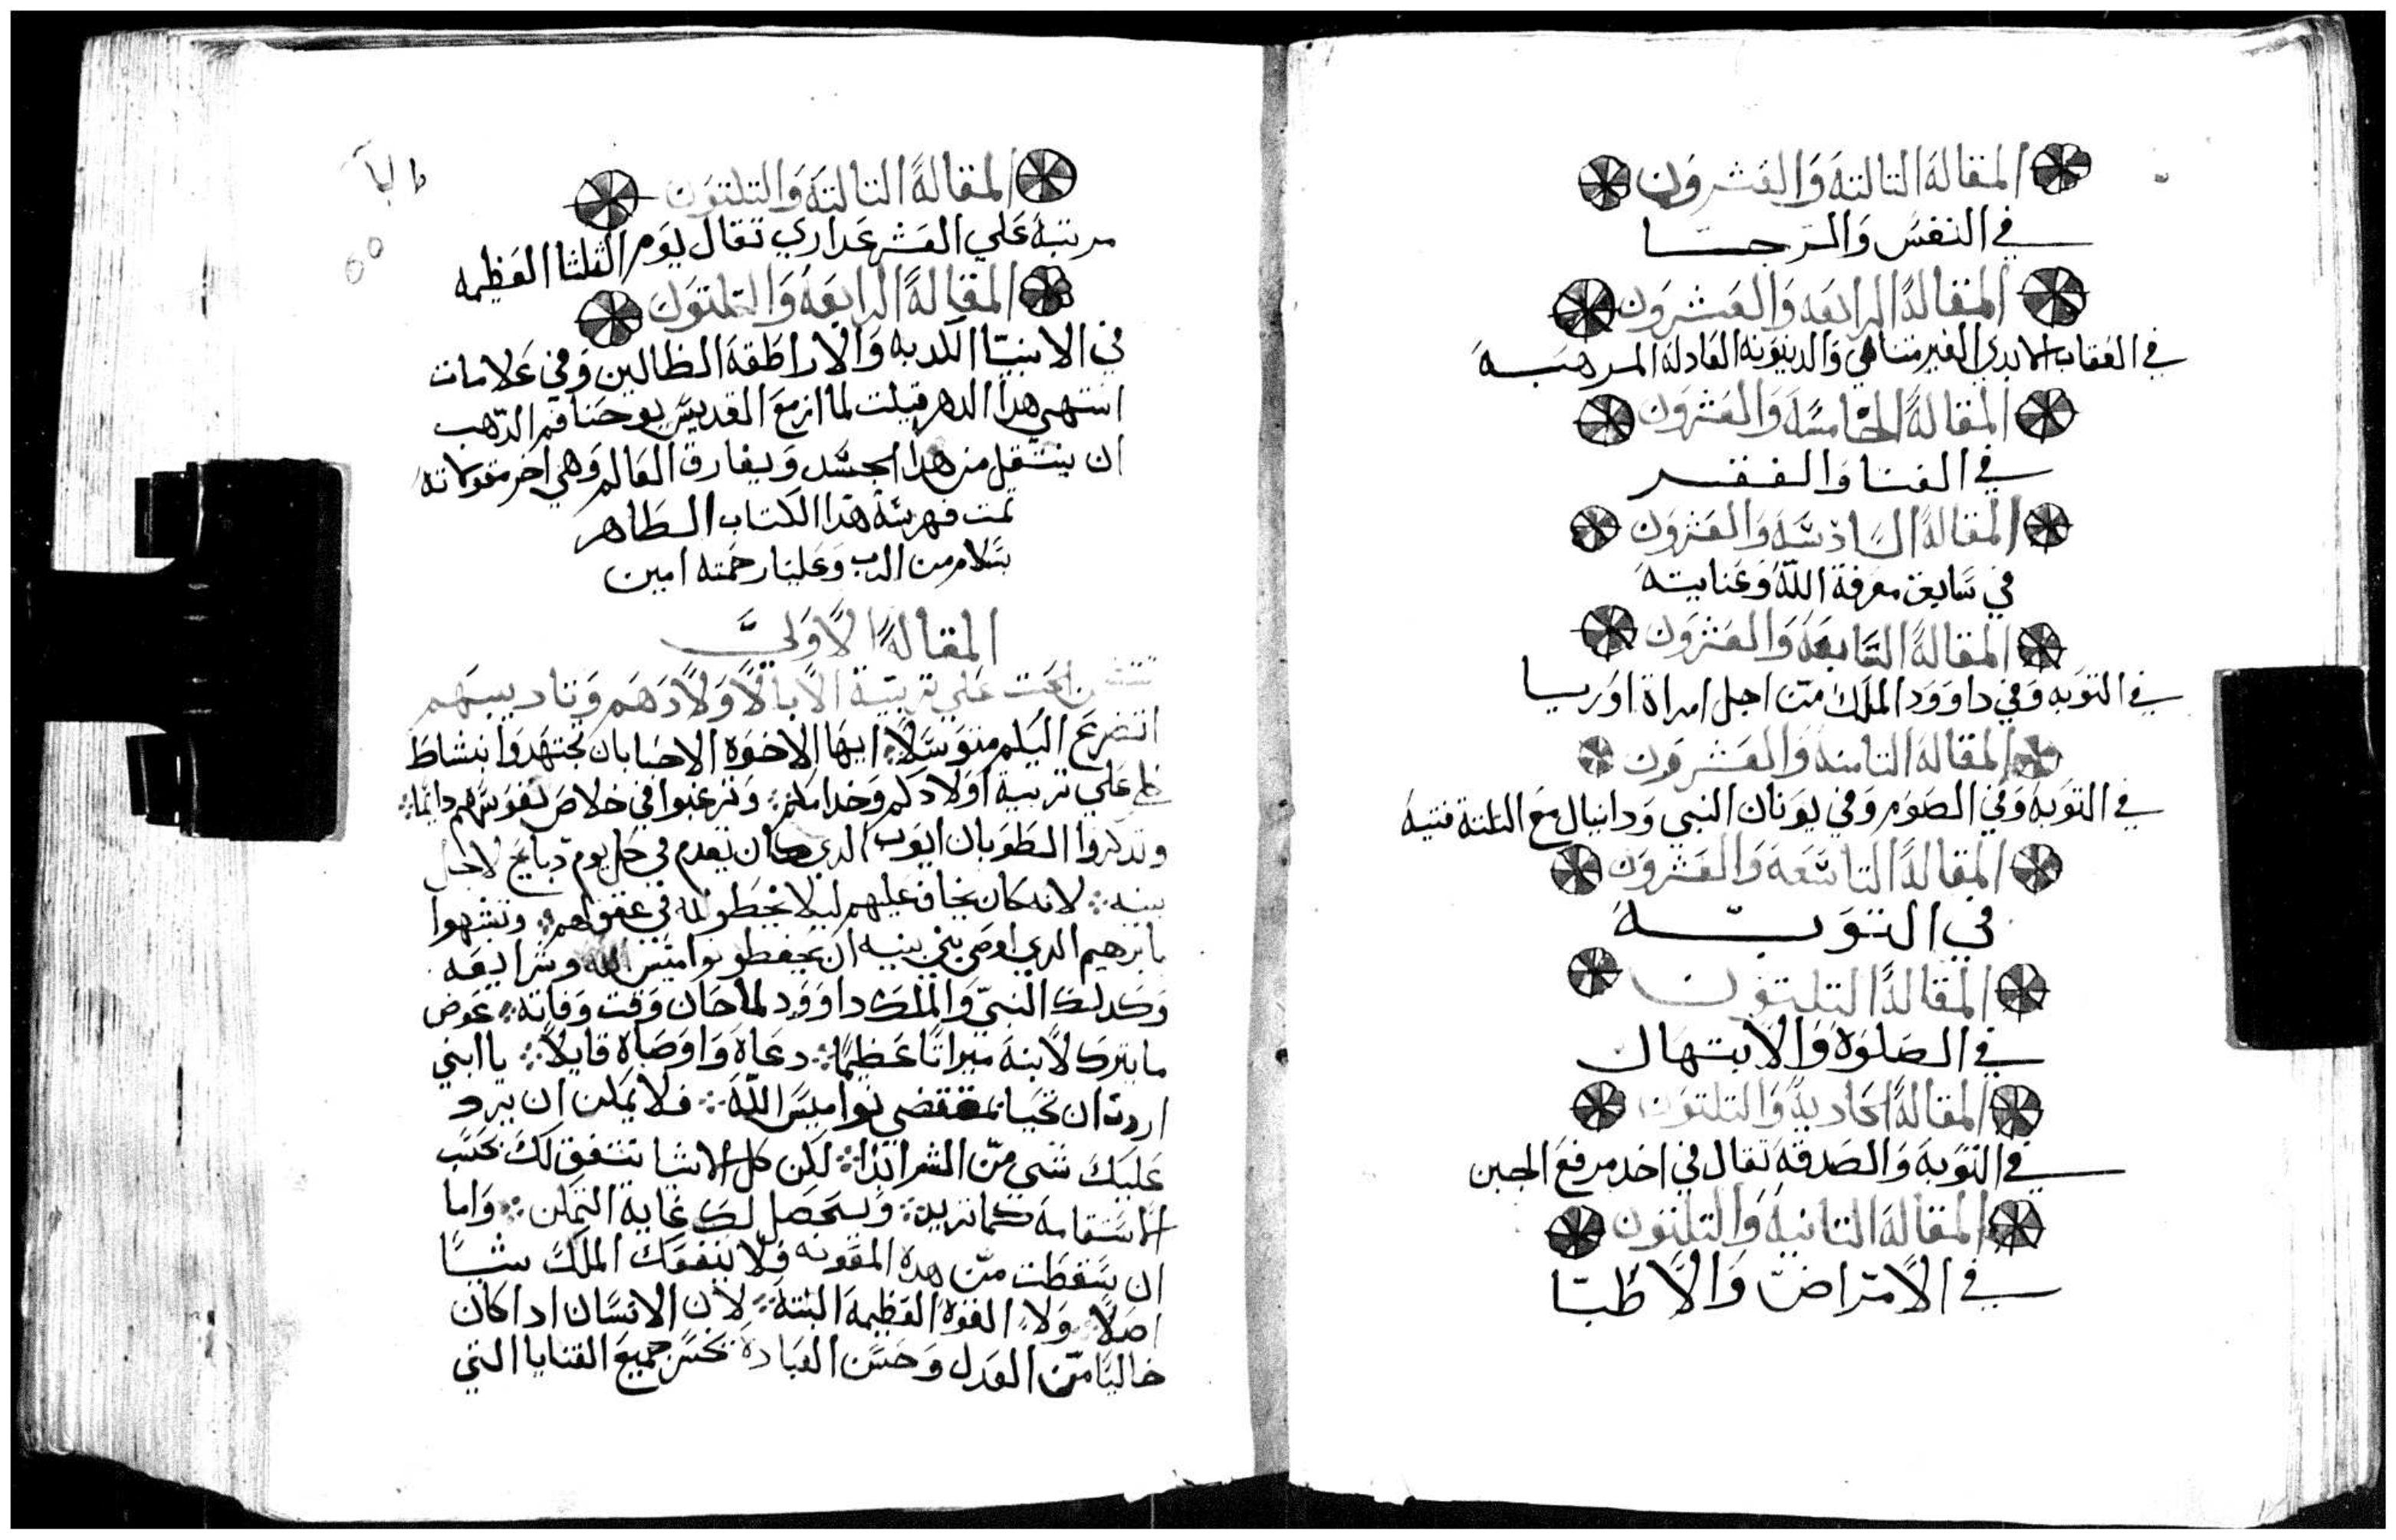 المقالة التالتة والعشرون
في النفس والرجسا
المقالة الرابعه والعشرون
في العقاب الابدي الغير متناهي والدينونه العادلة المرهبه
المقالة الخامسة والعشرون
في الغنا والفقر
المقالة السادسة والعشرون
في سابق معرفة الله وعنايته
المقالة السابعة والعشرون
في التوبه وفي داوود الملك من اجل امراة اوريا
المقالة التامنة والعشرون
في التوبه وفي الصوم وفي يونان النبي ودانيال مع التلتة فتية
المقالة التاسعة والعشرون
في التوبه
المقالة التلتون
في الصلوة والابتهال
المقالة الحادية والتلتون
في التوبه والصدقه تقال في احد مرفع الجبن
المقالة التانية والتلتون
في الامراض والاطبا
المقالة التالتة والتلتون
مرتبة علي العشر عداري تقال يوم الثلثا العظيمه
المقالة الرابعة والتلتون
في الانبيا الكدبه والاراطقة الظالين وفي علامات
انتهى هدا الدهر قيلت لما ازمع القديس يوحنا فم الدهب
ان ينتقل من هدا الجسد ويفارق العالم وهي اخر مقولاته
تمت فهرسة هدا الكتاب الطاهر
بسلام من الرب وعلينا رحمته امين
المقالة الاولى
الحت علي تربية الابا لاولادهم وتاديبهم
اتضرع اليكم متوسلا ايها الاخوه الاحبا بان تجتهدوا بنشاط
علي تربية اولادكم وخدامكم وترغبوا في خلاص نفوسهم دايما
وتدكروا الطوبان ايوب الدي كان يقدم في كل يوم دبايح لاجل
بنيه لانه كان يخاف عليهم ليلا يخطو لله في عقولهم وتشبهوا
بابرهيم الدي اوصى بني بنيه ان يحفطو نواميس الله وشرايعه
وكدلك النبي والملك داوود لما حان وقت وفاته عوض
ما يترك لابنه ميراتا عظيما دعاه واوصاه قايلا يا ابني
اردت ان تحيا بمقتضى نواميس الله فلا يمكن ان يرد
عليك شي من الشر ابدا لكن كل الاشيا تتفق لك بحسب
الاستقامة كما تريد ويحصل لك غاية التمكن واما
ان سقطت من هده المعونه فلا ينفعك الملك شيا
اصلا ولا القوة العظيمة البتة لان الانسان ادا كان
خاليا من العدل وحسن العبادة يخسر جميع القنايا التي